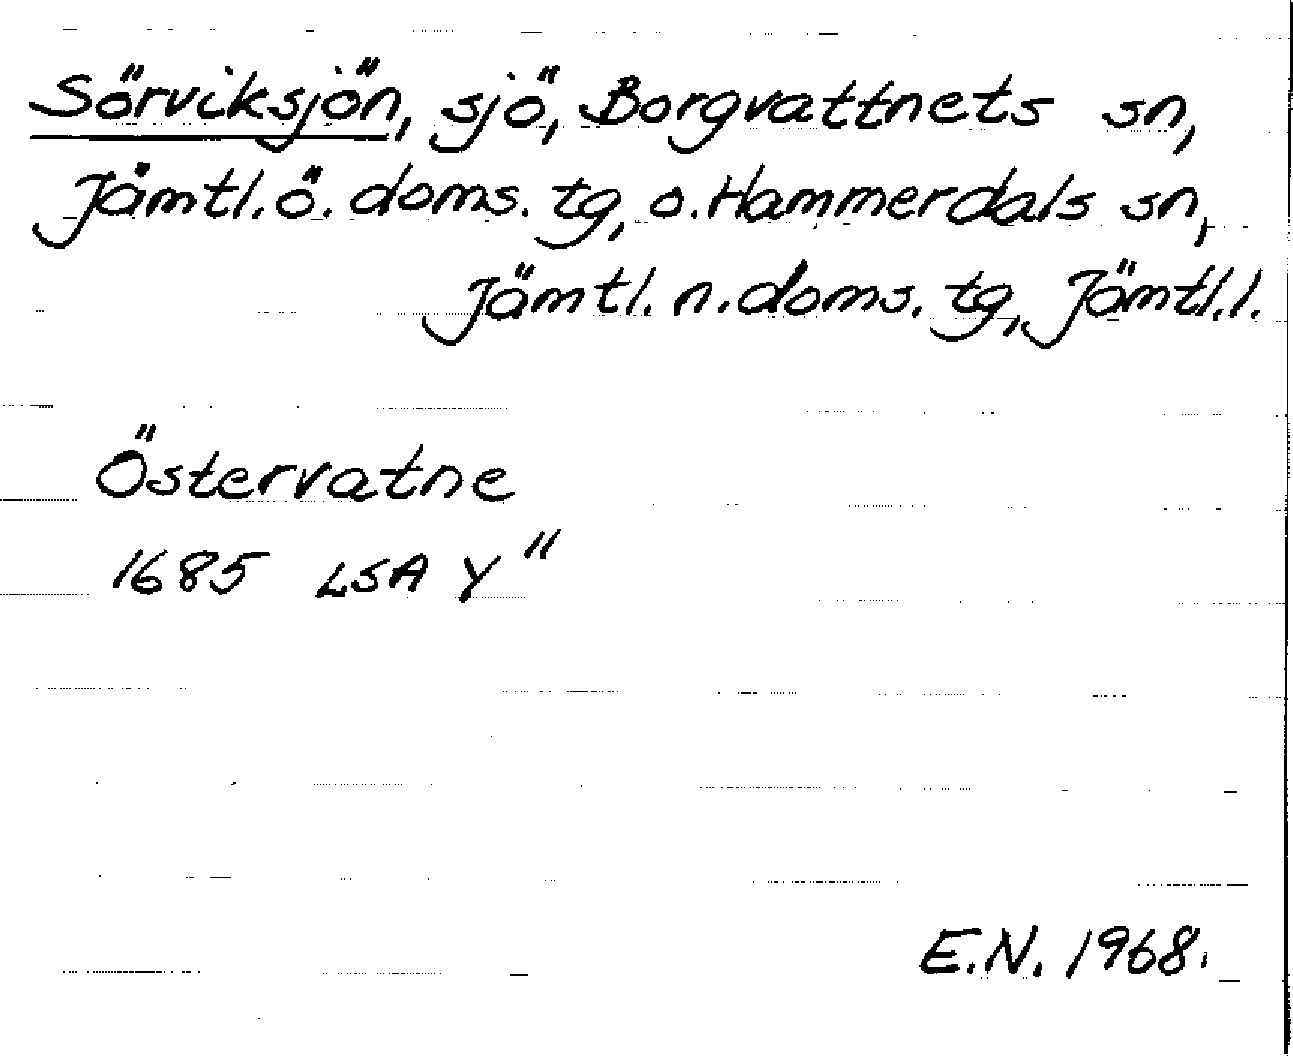 Sörviksjön, sjö, Borgvattnets sn,
Jämtl. ö. doms. tg, o. Hammerdals sn,
Jämtl. n. doms. tg, Jämtl. l.
Östervatne
1685 LSA Y"
E.N. 1968.